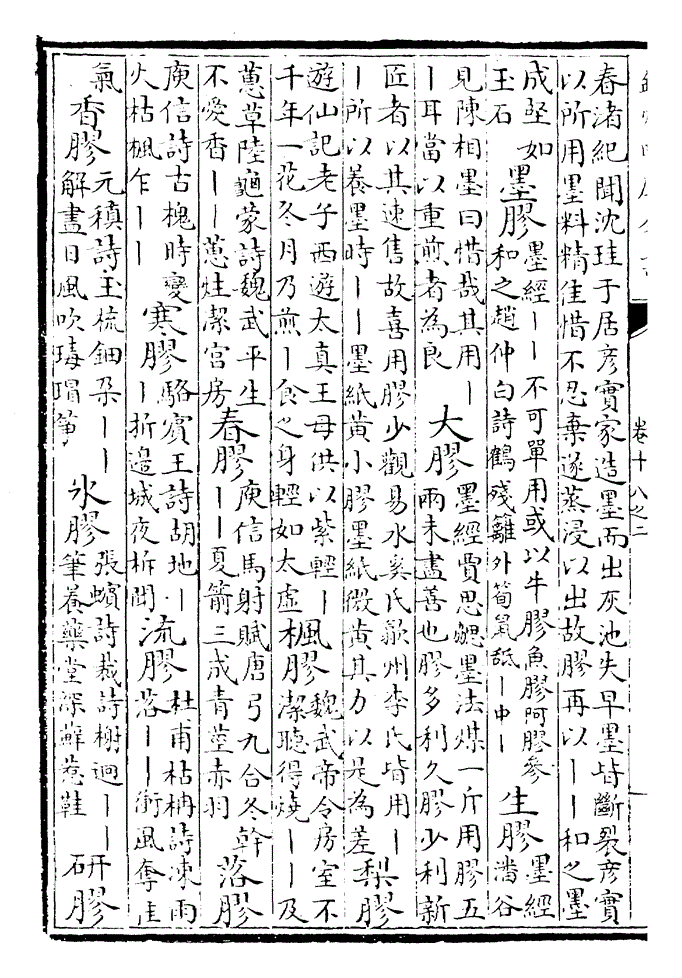 卷十八之二
春渚紀聞沈珪于居彥實家造墨而出灰池失早墨皆斷裂彥實
以所用墨料精佳惜不忍棄遂蒸浸以出故膠再以丨丨和之墨
成堅如
玉石
墨膠
墨經丨丨不可單用或以牛膠魚膠阿膠參
和之趙仲白詩鶴殘離外筍鼠舐丨中丨
生膠
墨經
潘谷
見陳相墨曰惜哉其用丨
丨耳當以重煎者為良
大膠
墨經賈思勰墨法煤一斤用膠五
兩未盡善也膠多利久膠少利新
匠者以其速售故喜用膠少觀易水奚氏歙州李氏皆用丨
丨所以養墨時丨丨墨紙黃小膠墨紙微黃其力以是為差
梨膠
遊仙記老子西遊太真王母供以紫輕丨
千年一花冬月乃煎丨食之身輕如太虛
楓膠
魏武帝令房室不
潔聽得燒丨丨及
蕙草陸龜蒙詩魏武平生
不愛香丨丨蕙炷潔宮房
春膠
庾信馬射賦唐弓九合冬幹
丨丨夏箭三成青莖赤羽
落膠
庾信詩古槐時變
火枯楓乍丨丨
寒膠
駱賓王詩胡地丨
丨折邊城夜柝聞
流膠
杜甫枯柟詩凍雨
落丨丨衝風奪佳
氣
香膠
元稹詩玉梳鈿朵丨丨
解盡日風吹瑇瑁箏
氷膠
張蠙詩裁詩榭迥丨丨
筆養藥堂深蘚惹鞋
研膠